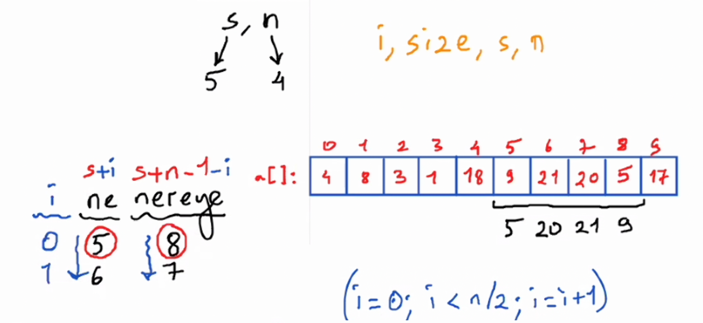 s, n
5 4
i, size, s, n
s+i s+n-1-i
i ne nereye
0 5 8
1 6 7
0 1 2 3 4 5 6 7 8 9
a[]: 4 8 3 1 18 9 21 20 5 17
5 20 21 9
(i=0; i<n/2; i=i+1)